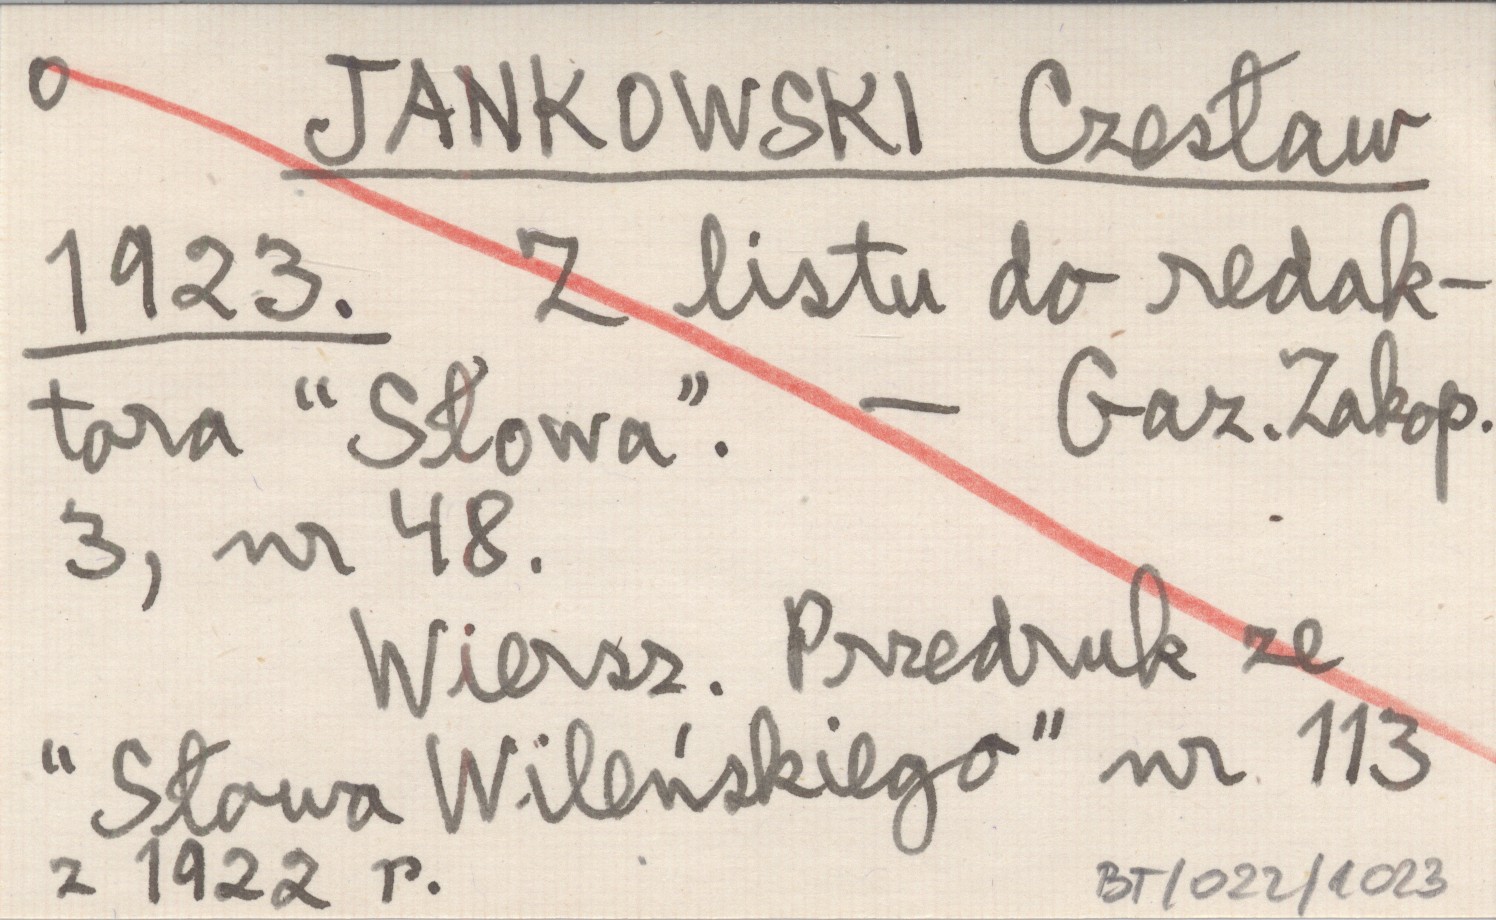 o JANKOWSKI Czesław
1923. Z listu do redak-
tora “Słowa”. — Gaz. Zakop.
3, nr 48.
Wiersz. Przedruk ze
“Słowa Wileńskiego” nr 113
z 1922 r.
BT/022/1023